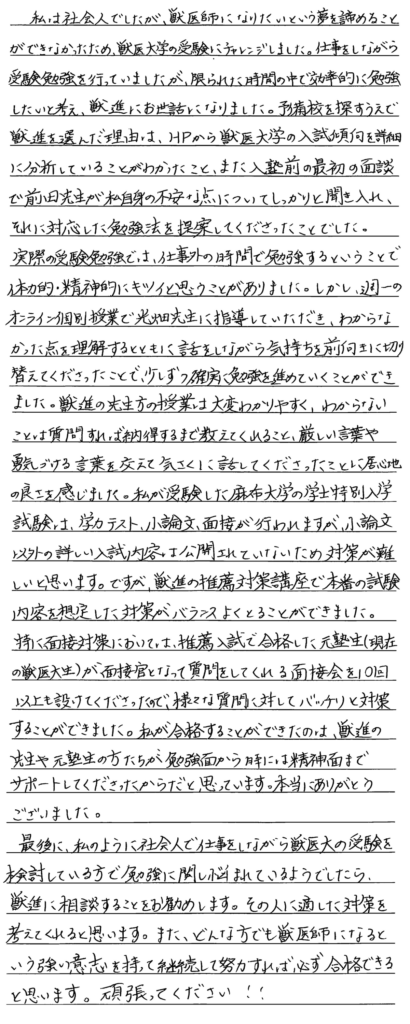 私は社会人でしたが、獣医師になりたいという夢を諦めること
ができなかったため、獣医大学の受験にチャレンジしました。仕事をしながら
受験勉強を行っていましたが、限られた時間の中で効率的に勉強
したいと考え、獣進にお世話になりました。予備校を探すうえで
獣進を選んだ理由は、HPから獣医大学の入試傾向を詳細
に分析していることがわかったこと、また入塾前の最初の面談
で前田先生が私自身の不安な点についてしっかりと聞き入れ、
それに対応した勉強法を提案してくださったことでした。
実際の受験勉強では、仕事外の時間で勉強するということで
体力的・精神的にキツイと思うことがありました。しかし、週一の
オンライン個別授業で光畑先生に指導していただき、わからな
かった点を理解するとともに話をしながら気持ちを前向きに切り
替えてくださったことで、少しずつ確実に勉強を進めていくことができ
ました。獣進の先生方の授業は大変わかりやすく、わからない
ことは質問すれば納得するまで教えてくれること、厳しい言葉や
勇気づける言葉を交えて気さくに話してくださったことに居心地
の良さを感じました。私が受験した麻布大学の学士特別入学
試験は、学力テスト、小論文、面接が行われますが、小論文
以外の詳しい入試内容は公開されていないため対策が難
しいと思います。ですが、獣進の推薦対策講座で本番の試験
内容を想定した対策がバランスよくとることができました。
特に面接対策においては、推薦入試で合格した元塾生(現在
の獣医大生)が面接官となって質問をしてくれる面接会を10回
以上も設けてくださったので、様々な質問に対してバッチリと対策
することができました。私が合格することができたのは、獣進の
先生や元塾生の方たちが勉強面から時には精神面まで
サポートしてくださったからだと思っています。本当にありがとう
ございました。
最後に、私のように社会人で仕事をしながら獣医大の受験を
検討している方で勉強に関し悩まれているようでしたら、
獣進に相談することをお勧めします。その人に適した対策を
考えてくれると思います。また、どんな方でも獣医師になると
いう強い意志を持って継続して努力すれば必ず合格できる
と思います。頑張ってください！！